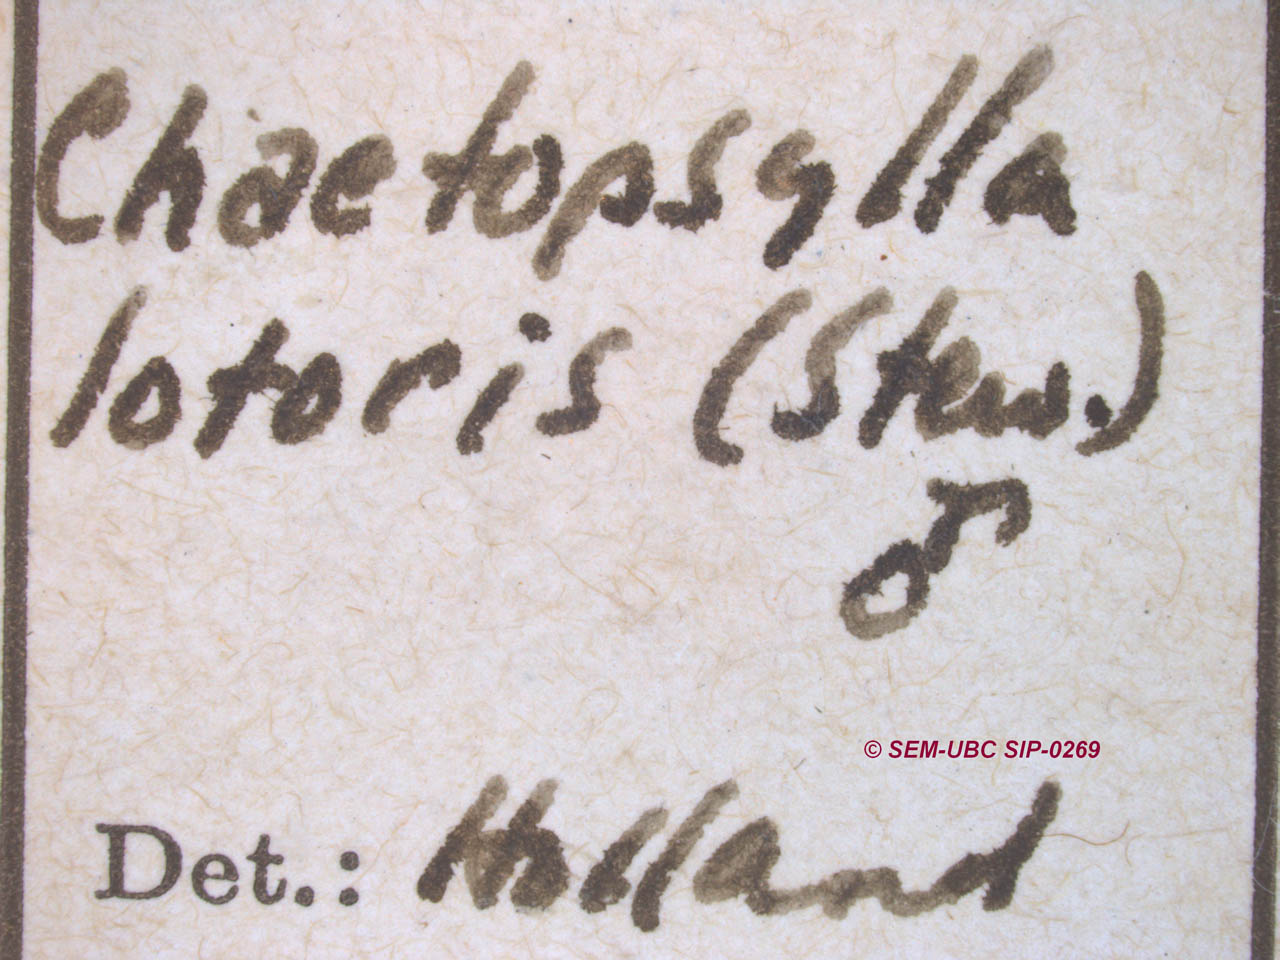 Chaetopsylla
lotoris (Stew.)
♂
© SEM-UBC SIP-0269
Det.: Holland